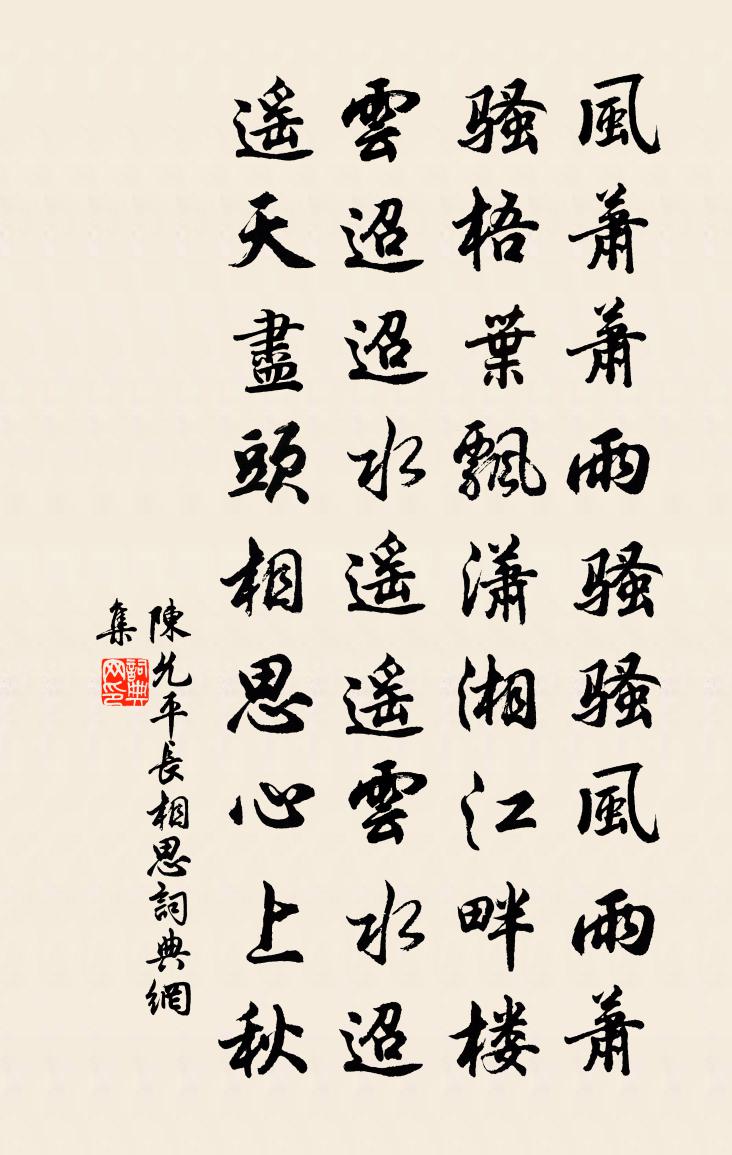 風蕭蕭雨騷騷風雨蕭
騷梧葉飄瀟湘江畔楼
雲迢迢水遥遥雲水迢
遥天盡頭相思心上秋
陳允平長相思詞典網
集
詞典
网印